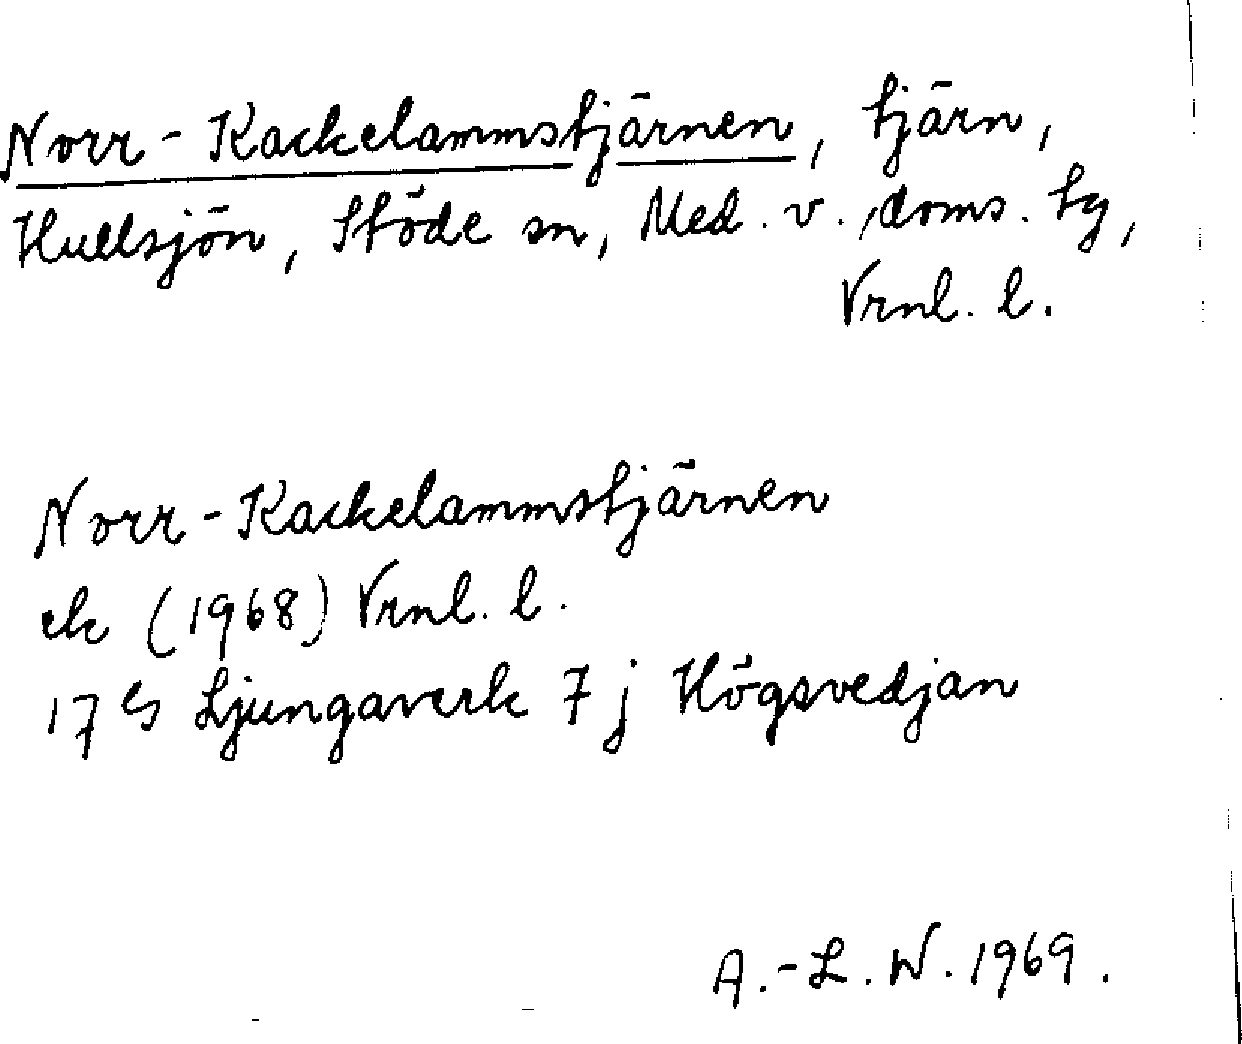 Norr-Kackelammstjärnen, tjärn,
Hullsjön, Stöde sn, Med. v. doms. tg,
Vrnl. l.
Norr-Kackelammstjärnen
ek (1968) Vrnl. l.
17 G Ljungaverk 7 j Högsvedjan
A.-L. W. 1969.